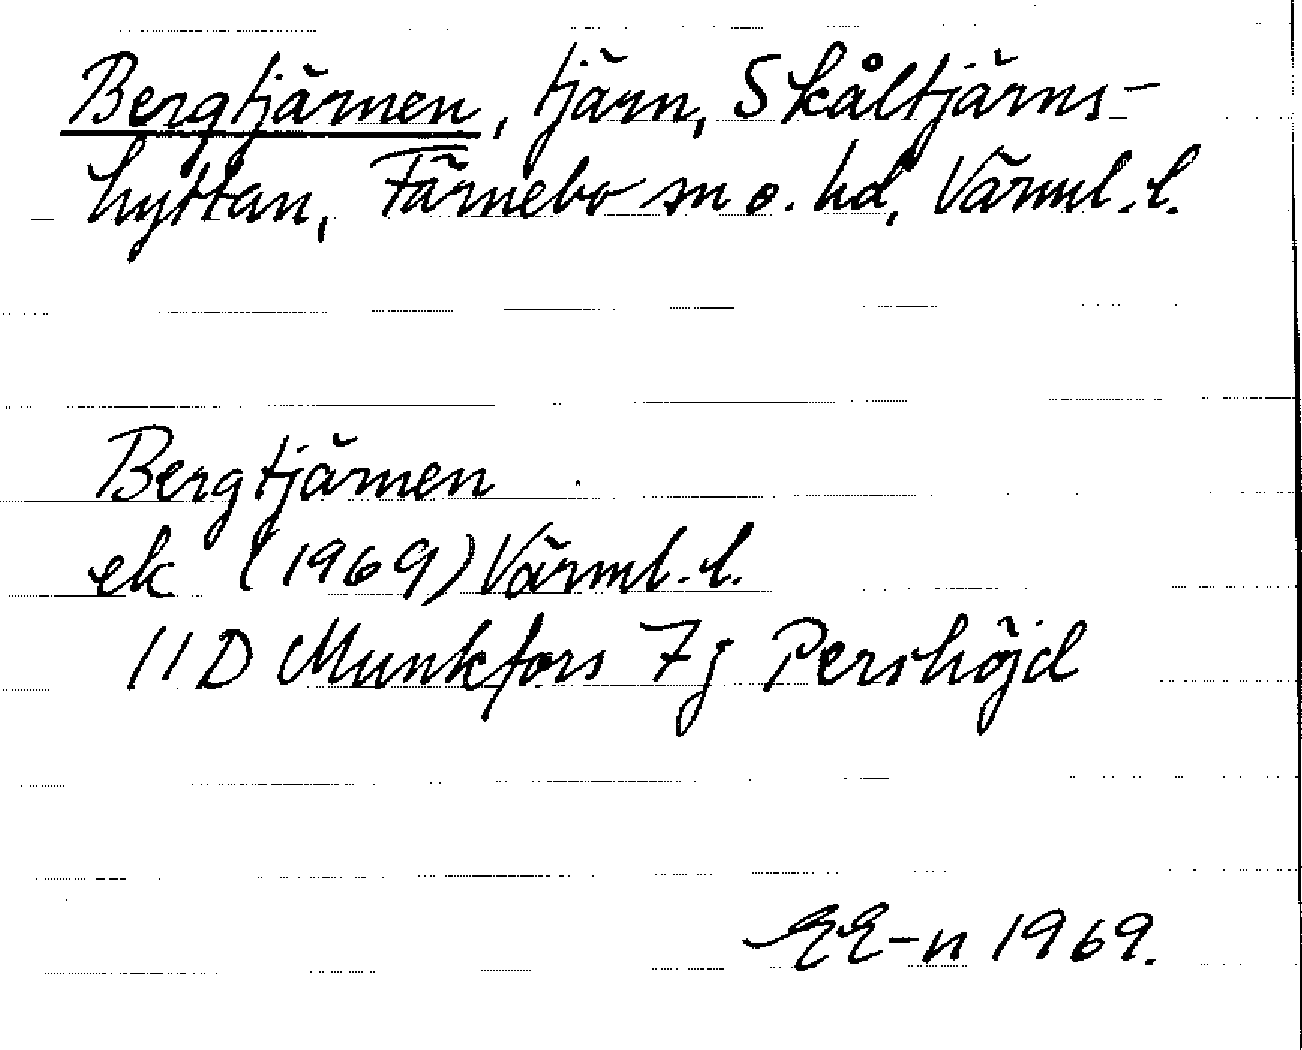 Bergtjärnen, tjärn, Skåltjärns-
hyttan, Färnebo sn o. hd, Värml. l.
Bergtjärnen
ek (1969) Värml. l.
11D Munkfors 7g Pershöjd
EE-n 1969.